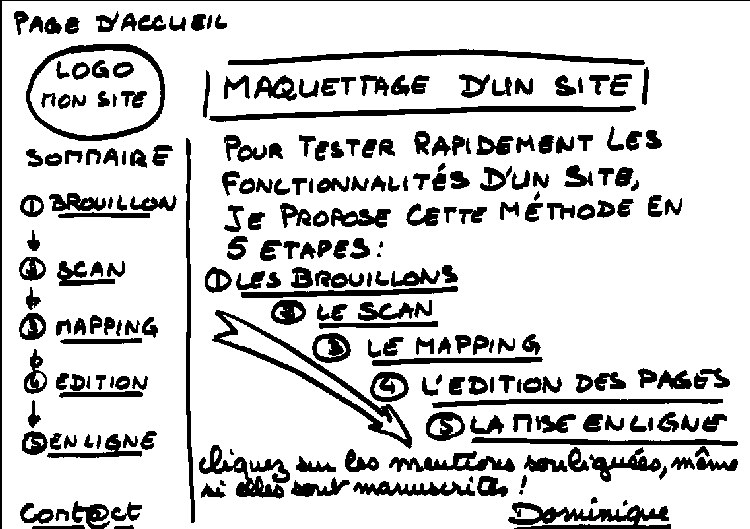 PAGE D'ACCUEIL
LOGO
MON SITE
SOMMAIRE
① BROUILLON
② SCAN
③ MAPPING
④ EDITION
⑤ EN LIGNE
Cont@ct
MAQUETTAGE D'UN SITE
POUR TESTER RAPIDEMENT LES
FONCTIONNALITÉS D'UN SITE,
JE PROPOSE CETTE MÉTHODE EN
5 ETAPES :
① LES BROUILLONS
② LE SCAN
③ LE MAPPING
④ L'EDITION DES PAGES
⑤ LA MISE EN LIGNE
cliquez sur les mentions soulignées, même
si elles sont manuscrites !
Dominique